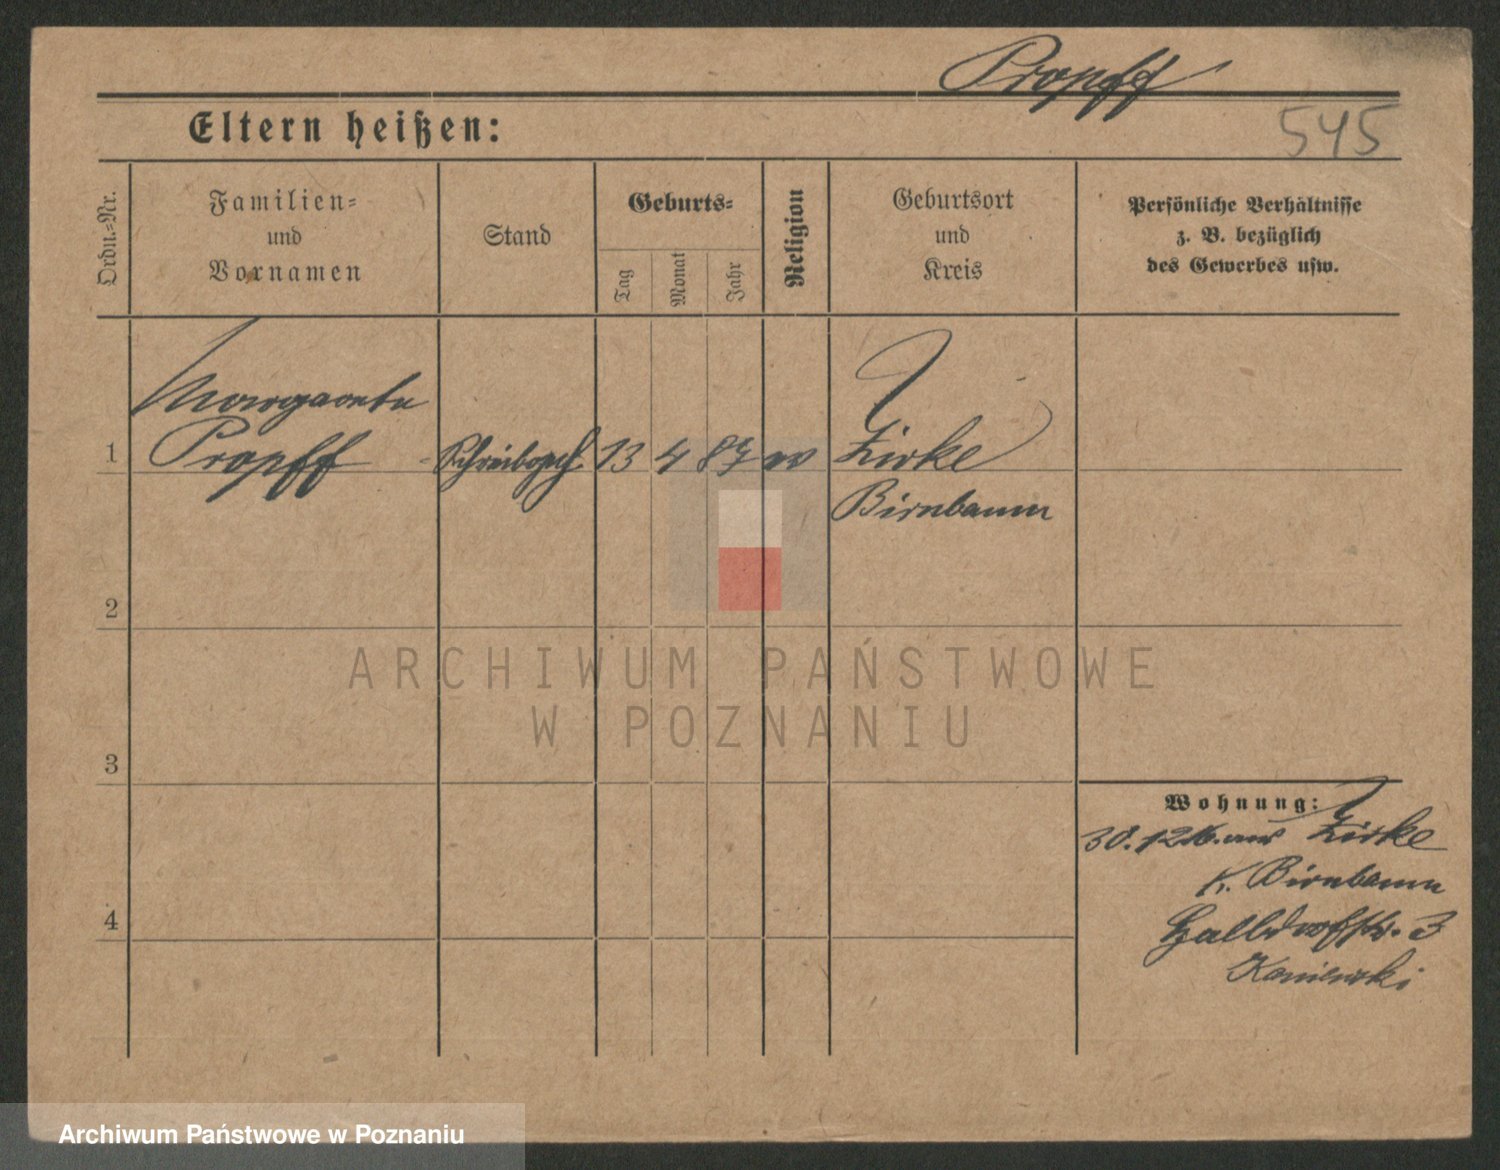 Propff
545
Eltern heißen:
Ordn.-Nr.
Familien-
und
Vornamen
Stand
Geburts-
Tag
Monat
Jahr
Religion
Geburtsort
und
Kreis
Persönliche Verhältnisse
z. B. bezüglich
des Gewerbes usw.
Margarete
1 Propff 13 4 87 Zirke
Birnbaum
2
ARCHIWUM PAŃSTWOWE
W POZNANIU
3
Wohnung:
30.12.16. aus Zirke
K. Birnbaum
4 3
Kaniewski
Archiwum Państwowe w Poznaniu